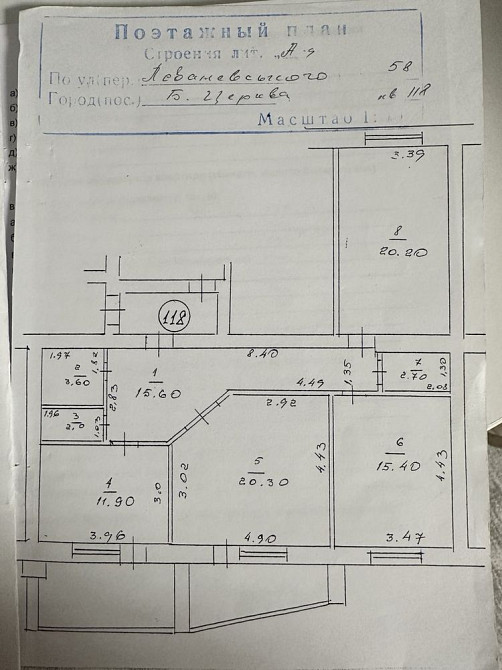 Поэтажный план
Строения лит. А-9
По ул(пер. Леваневського 58
Город(пос.) Б. Церква кв 118
Масштаб 1:
3.39
8
20.20
118
1.97
2
3.60
1.82
1
15.60
8.40
4.49
1.35
7
2.70
1.30
2.08
2.83
1.96
3
2.0
1.03
2.92
4
11.90
3.0
3.02
5
20.30
4.43
6
15.40
4.43
3.96
4.90
3.47
а)
б)
в)
г)
д)
ж